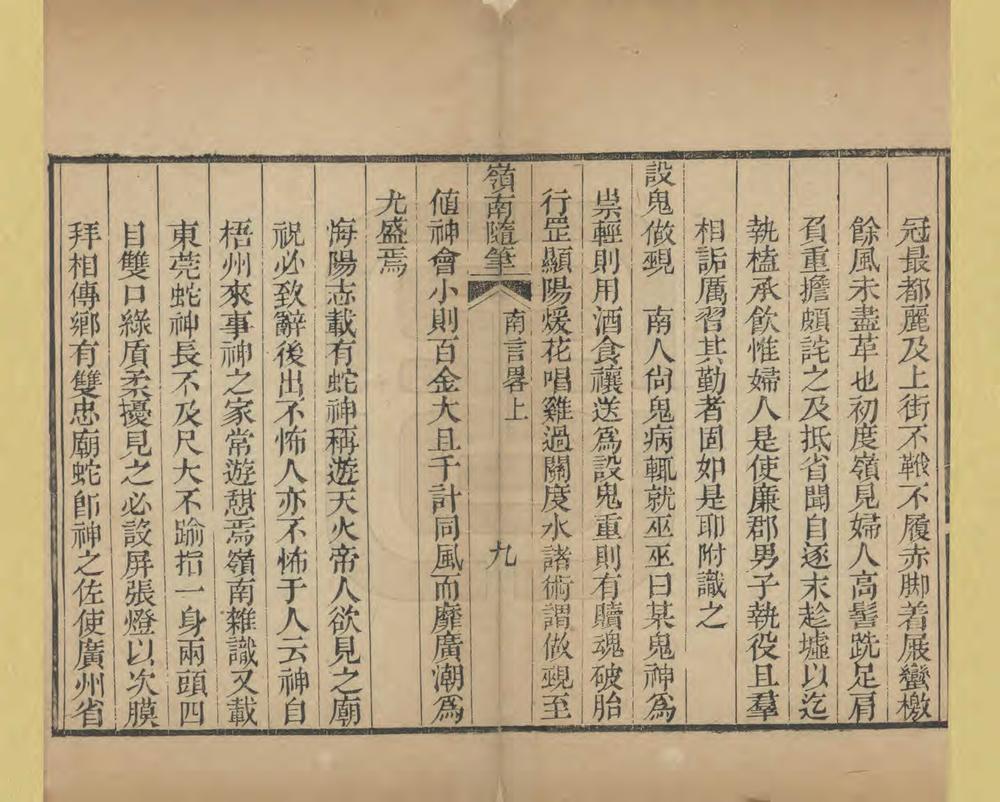 冠最都麗及上街不襪不履赤脚着屐蠻檄
餘風未盡革也初度嶺見婦人高髻跣足肩
負重擔頗詫之及抵省聞自逐末趁墟以迄
執榼承飲惟婦人是使廉郡男子執役且羣
相詬厲習其勤者固如是耶附識之
設鬼做覡　南人尙鬼病輒就巫巫曰某鬼神爲
祟輕則用酒食禳送爲設鬼重則有贖魂破胎
行罡顯陽煖花唱雞過關度水諸術謂做覡至
値神會小則百金大且千計同風而靡廣潮爲
尤盛焉
嶺南隨筆
南言畧上
九
海陽志載有蛇神稱遊天火帝人欲見之廟
祝必致辭後出不怖人亦不怖于人云神自
梧州來事神之家常遊憇焉嶺南雜識又載
東莞蛇神長不及尺大不踰指一身兩頭四
目雙口綠質柔擾見之必設屏張燈以次膜
拜相傳鄉有雙忠廟蛇卽神之佐使廣州省